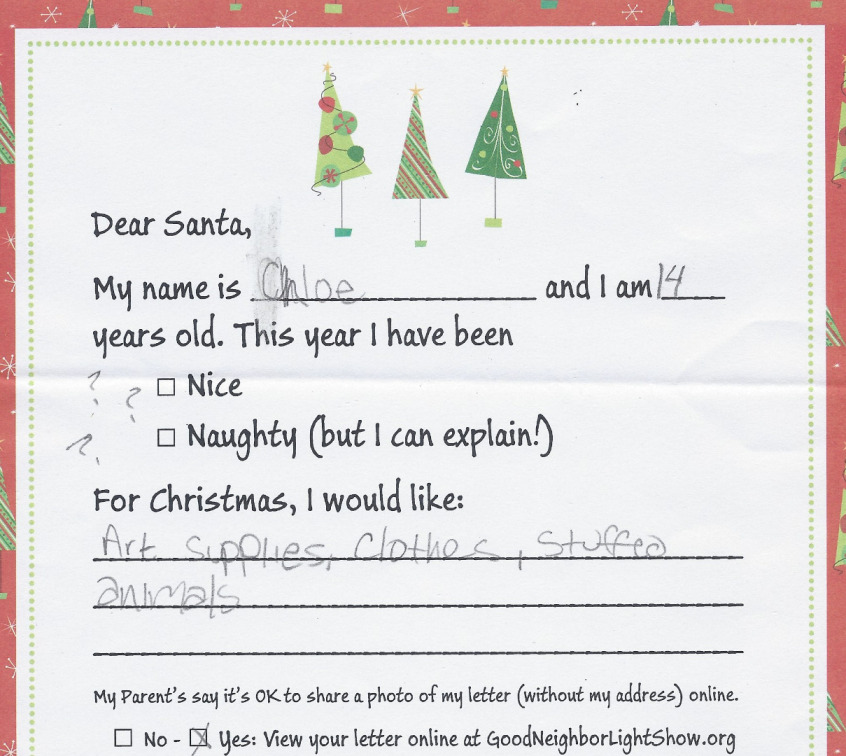 Dear Santa,
My name is Chloe and I am 14
years old. This year I have been
? ? ☐ Nice
? ☐ Naughty (but I can explain!)
For Christmas, I would like:
Art supplies, Clothes, Stuffed
animals
My Parent's say it's OK to share a photo of my letter (without my address) online.
☐ No - ☒ Yes: View your letter online at GoodNeighborLightShow.org